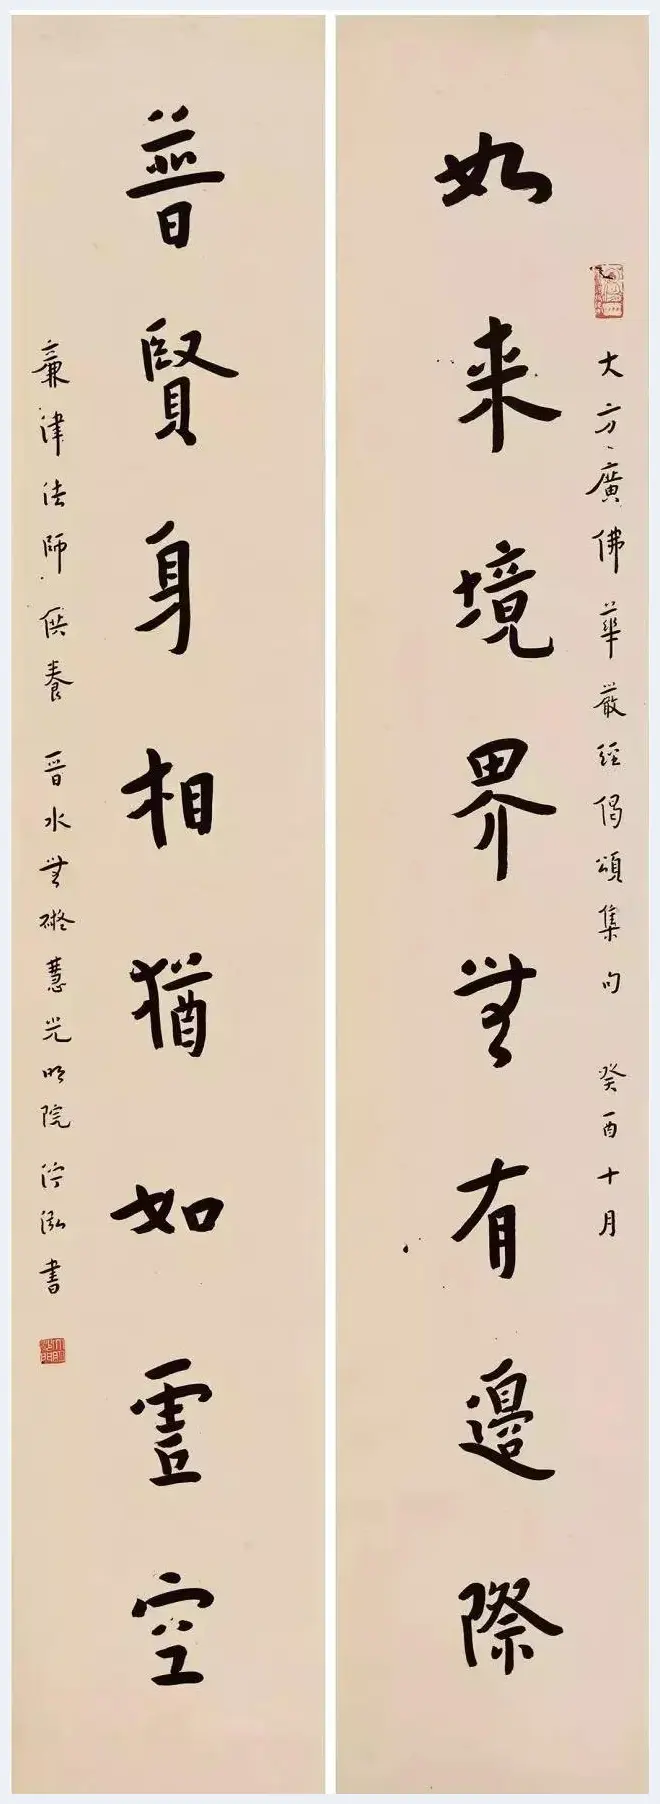 大方廣佛華嚴經偈頌集句 癸酉十月
如来境界無有邊際
普賢身相猶如虛空
廣津法師供養 晉水無礙慧光明院 沙泓書